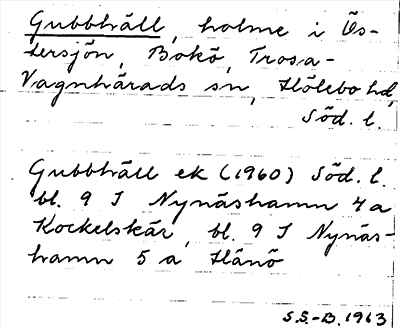 Gubbhäll, holme i Ös-
tersjön, Bokö, Trosa-
Vagnhärads sn, Hölebo hd,
Söd. l.
Gubbhäll ek (1960) Söd. l.
bl. 9 I Nynäshamn 4a
Kockelskär, bl. 9 I Nynäs-
hamn 5 a Hånö
S.S.-B. 1963